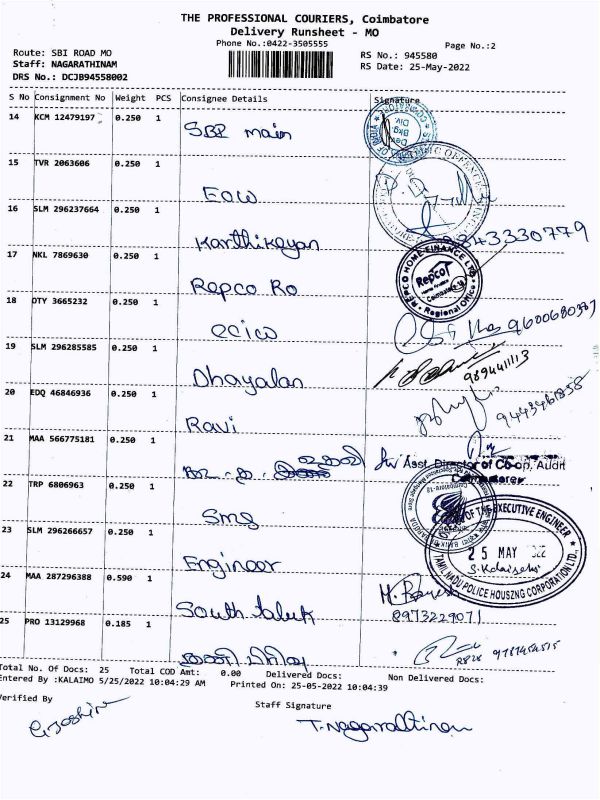 THE PROFESSIONAL COURIERS, Coimbatore
Delivery Runsheet - MO
Phone No.:0422-3505555
Page No.:2
Route: SBI ROAD MO
RS No.: 945580
Staff: NAGARATHINAM
RS Date: 25-May-2022
DRS No.: DCJB94558002
S No Consignment No Weight PCS Consignee Details Signature
14 KCM 12479197 0.250 1
SBI main
15 TVR 2063606 0.250 1
EOW
16 SLM 296237664 0.250 1
Karthikeyan 43330779
17 NKL 7869630 0.250 1
REPCO HOME FINANCE LTD
Repco
Regional Office
Repco Ro
18 OTY 3665232 0.250 1
9600680387
19 SLM 296285585 0.250 1
Dhayalan 9894411113
20 EDQ 46846936 0.250 1
Ravi
21 MAA 566775181 0.250 1
Asst. Director of Co-op. Audit
Coimbatore
22 TRP 6806963 0.250 1
Sms
OF THE EXECUTIVE ENGINEER
23 SLM 296266657 0.250 1
25 MAY
TAMIL NADU POLICE HOUSZNG CORPORATION LTD.,
Engineer
24 MAA 287296388 0.590 1
South taluk 8973229071
25 PRO 13129968 0.185 1
Total No. Of Docs: 25 Total COD Amt: 0.00 Delivered Docs: Non Delivered Docs:
Entered By :KALAIMO 5/25/2022 10:04:29 AM Printed On: 25-05-2022 10:04:39
Verified By
Staff Signature
T. Nagarathinam